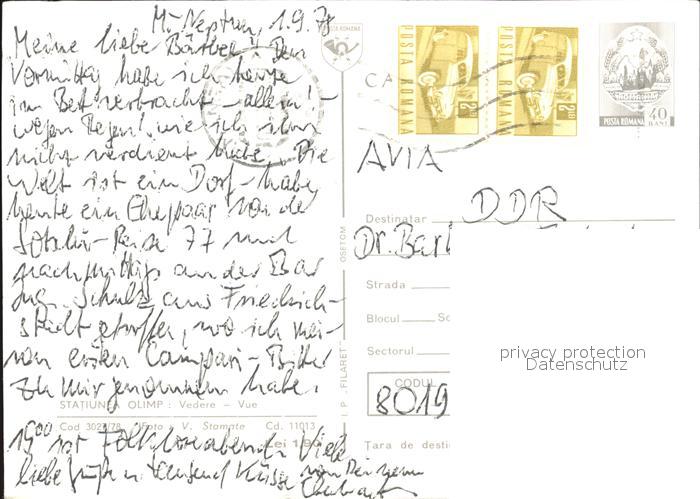 M-Neptun, 1.9.78
Meine liebe Bärbel! Den
Vormittag habe ich heute
im Bett verbracht - allein! -
wegen Regen! wie ich ihn
nicht verdient habe. Die
Welt ist ein Dorf - habe
heute ein Ehepaar von der
Reise 77 und
nachmittags an der Bar
Ing. Schulz aus Friedrich-
stadt getroffen, wo ich mei-
nen ersten Campari-Bitter
zu mir genommen habe.
STAȚIUNEA OLIMP : Vedere — Vue
Cod 302/78 Foto : V. Stamate Cd. 11013
Lei 1,90
19⁰⁰ ist Folkloreabend. Viele
liebe Grüße u. tausend Küsse von Deinem
I. P. „FILARET"
OSETOM
POȘTA ROMÂNĂ
POSTA ROMANA
2 LEI
POSTA ROMANA
2 LEI
POSTA ROMANA 40 BANI
CA
AVIA
Destinatar DDR
Dr. Bärb
Strada
Blocul Sc
Sectorul
CODUL
8019
Țara de desti
privacy protection
Datenschutz